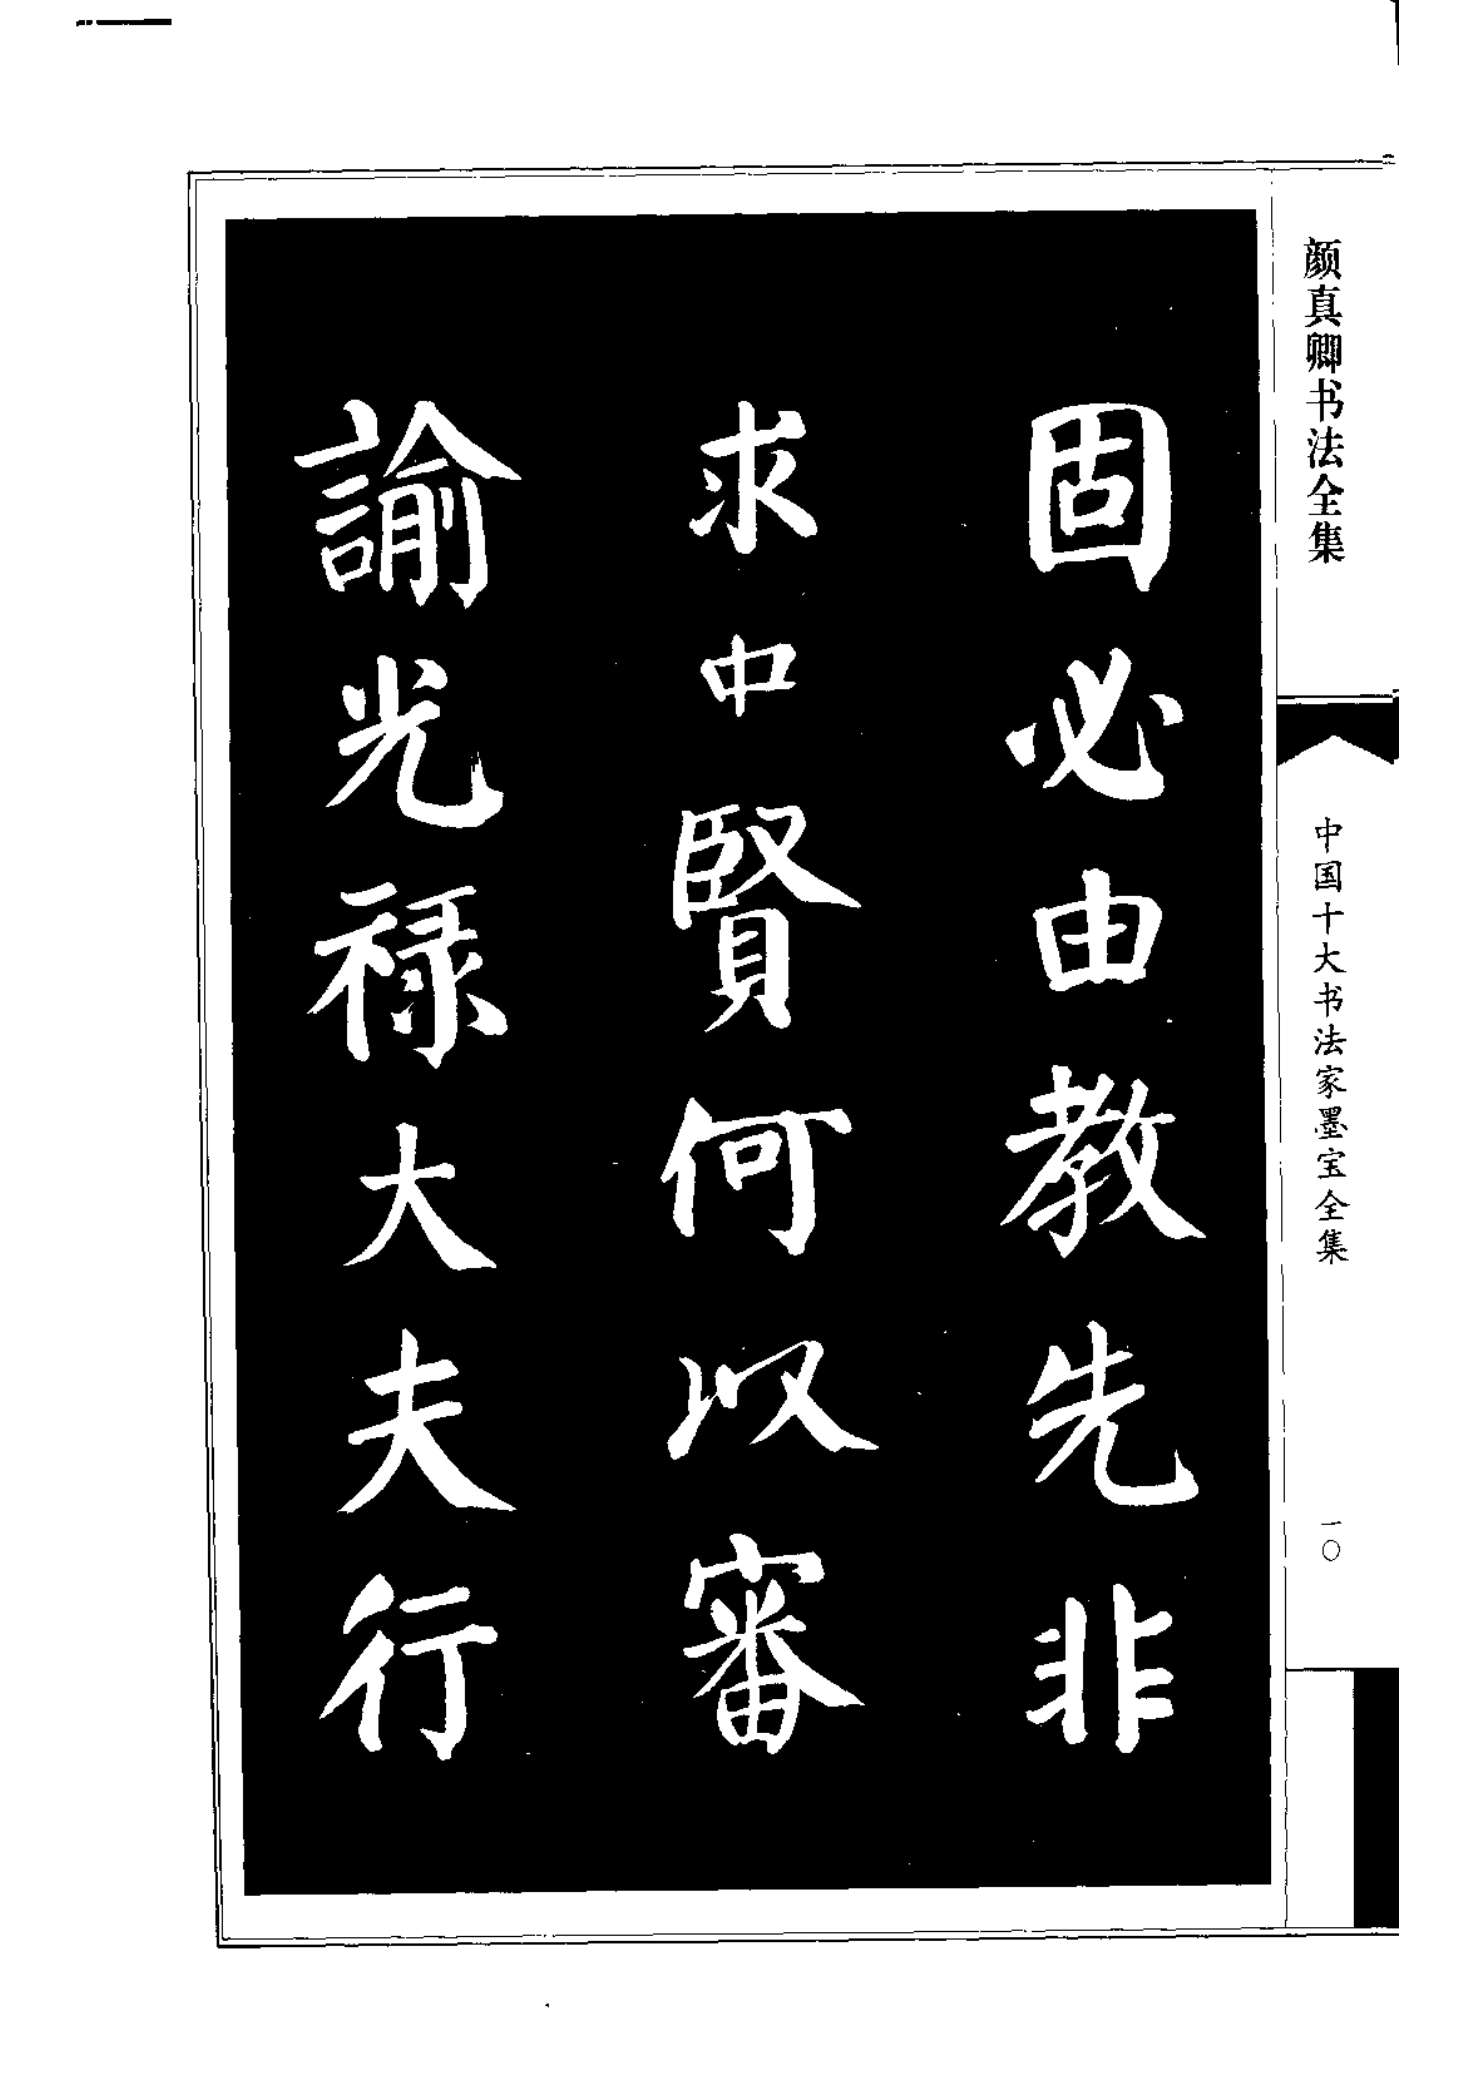 颜真卿书法全集
中国十大书法家墨宝全集
一〇
固必由教先非
求中賢何以審
諭光禄大夫行